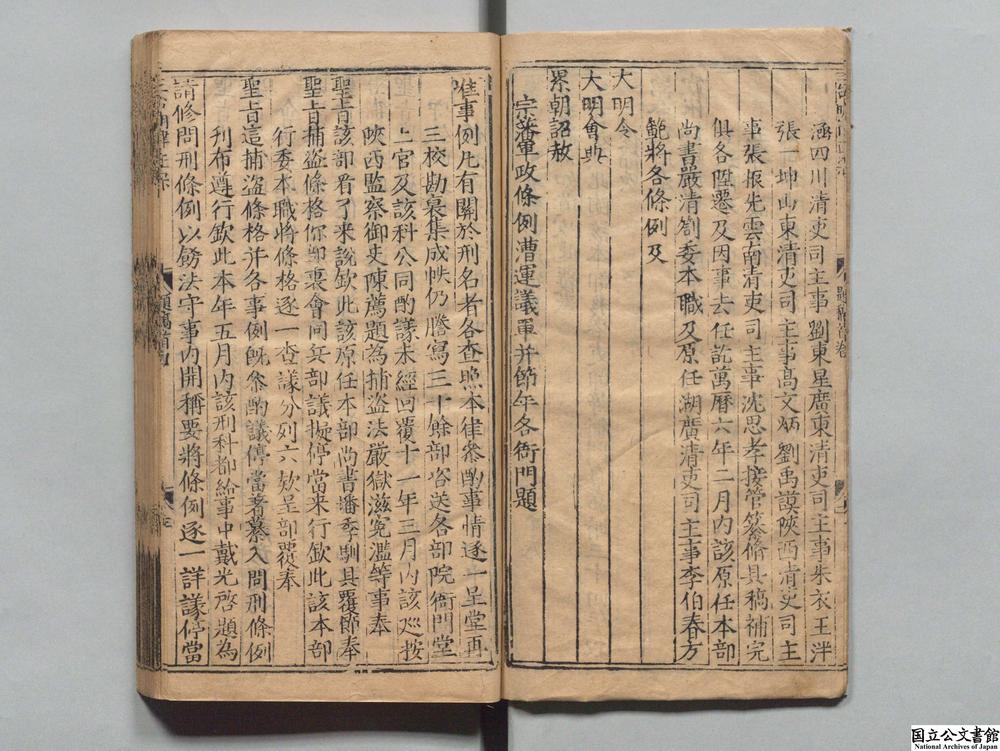 涵四川清吏司主事劉東星廣東清吏司主事朱衣王泮
張一坤山東清吏司主事高文炳劉禹謨陝西清吏司主
事張振先雲南清吏司主事沈思孝接管纂脩具稿補完
俱各陞遷及因事去任訖萬曆六年二月内該原任本部
尚書嚴清劄委本職及原任湖廣清吏司主事李伯春方
範將各條例及
大明令
大明會典
累朝詔赦
宗藩軍政條例漕運議單并節年各衙門題
准事例凡有關於刑名者各查照本律參酌事情逐一呈堂再
三校勘裒集成帙仍謄寫三十餘部咨送各部院衙門堂
上官及該科公同酌議未經回覆十一年三月内該巡按
陝西監察御史陳薦題為捕盗法嚴獄滋冤濫等事奉
聖旨該部看了来說欽此該原任本部尚書潘季馴具覆節奉
聖旨捕盗條格你部裏會同兵部議擬停當来行欽此該本部
行委本職將條格逐一查議分列六欵呈部覆奉
聖旨這捕盗條格并各事例既參酌議停當著纂入問刑條例
刊布遵行欽此本年五月内該刑科都給事中戴光啓題為
請修問刑條例以飭法守事内開稱要將條例逐一詳議停當
国立公文書館
National Archives of Japan